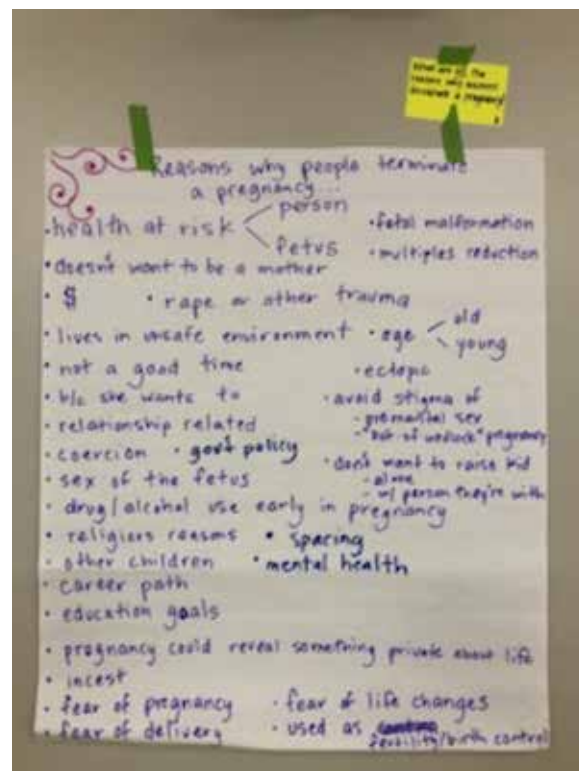 What are all the
reasons why women
terminate a pregnancy
Reasons why people terminate
a pregnancy...
• health at risk person
fetus
• fetal malformation
• multiples reduction
• doesn't want to be a mother
• $ • rape or other trauma
• lives in unsafe environment • age old
young
• not a good time • ectopic
• b/c she wants to • avoid stigma of
- premarital sex
- "out of wedlock" pregnancy
• relationship related
• coercion • gov't policy • don't want to raise kid
- alone
- w/ person they're with
• sex of the fetus
• drug/alcohol use early in pregnancy
• religious reasons • spacing
• other children • mental health
• career path
• education goals
• pregnancy could reveal something private about life
• incest
• fear of pregnancy • fear of life changes
• fear of delivery • used as
fertility/birth control